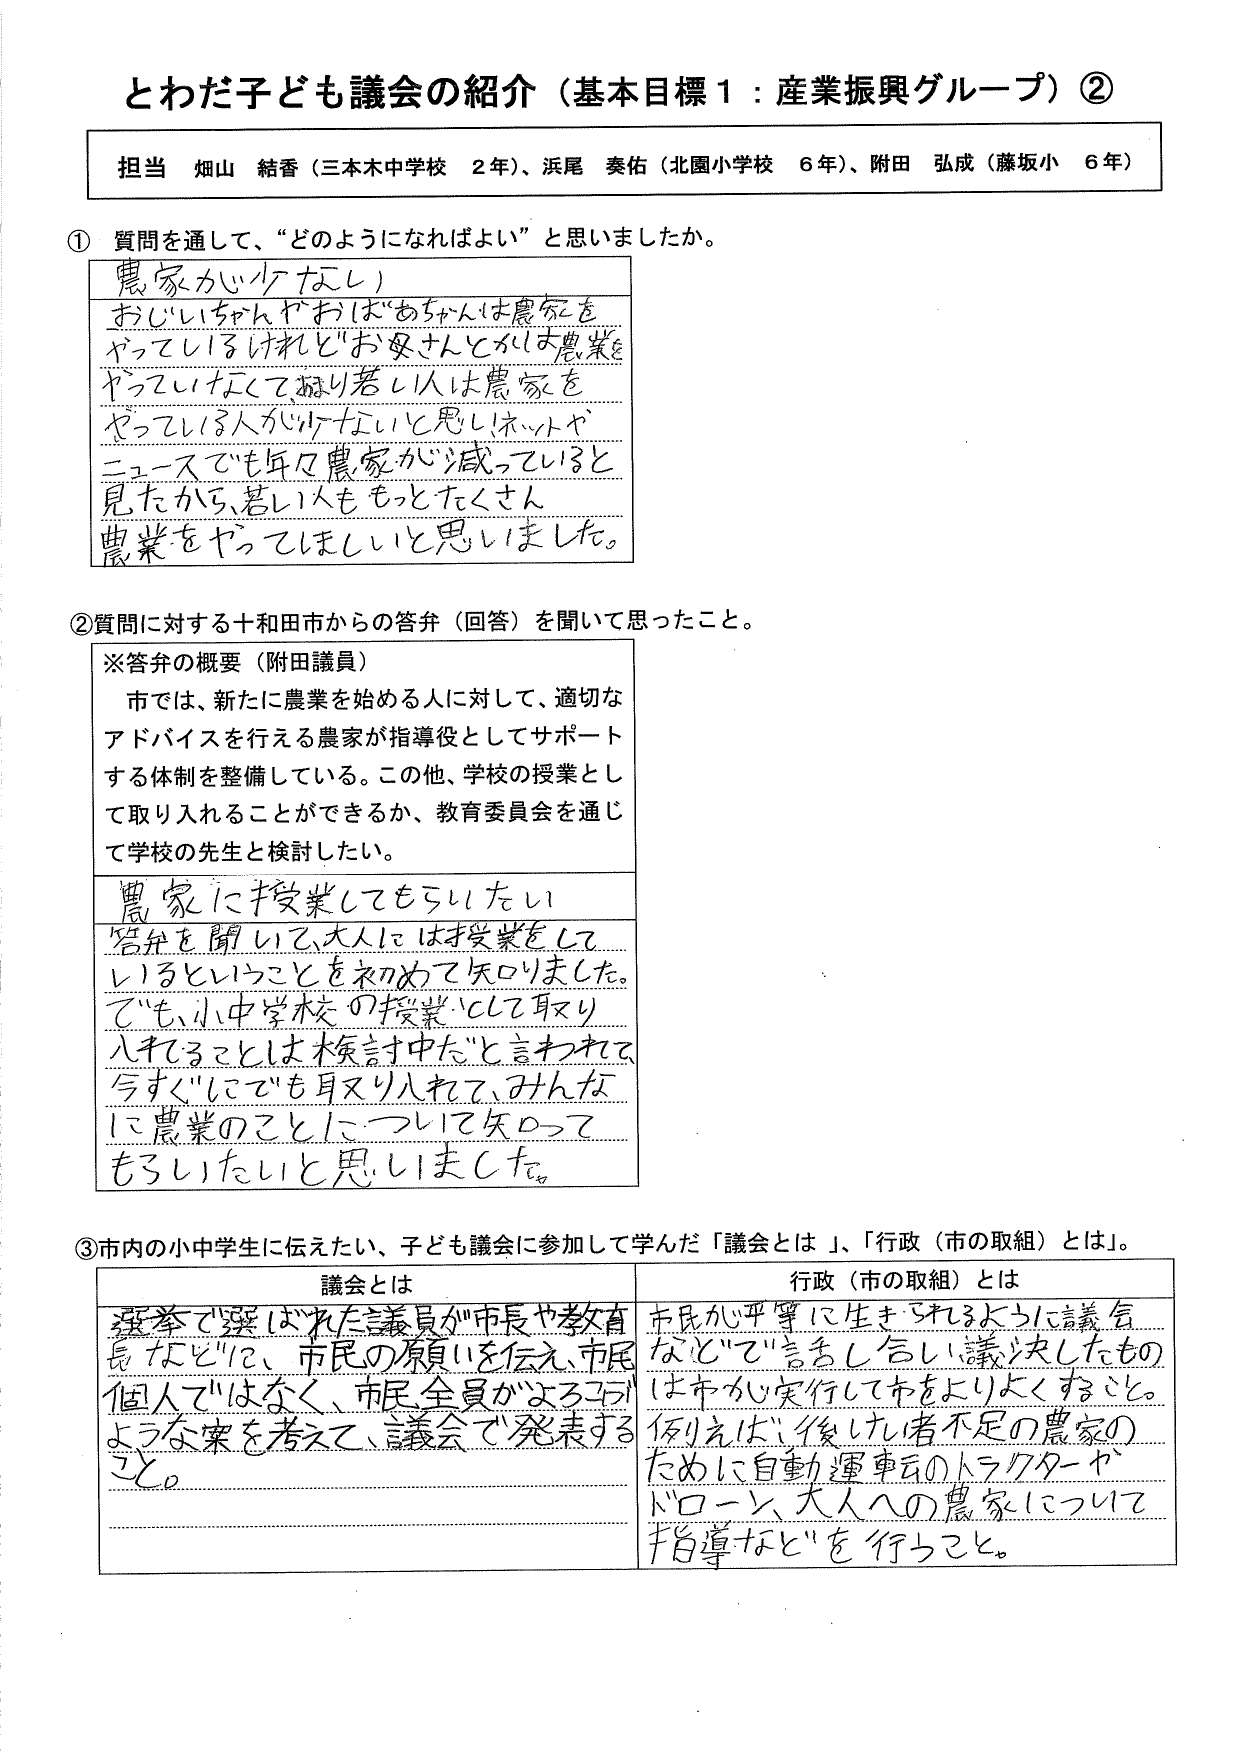 とわだ子ども議会の紹介（基本目標１：産業振興グループ）②
担当　畑山　結香（三本木中学校　２年）、浜尾　奏佑（北園小学校　６年）、附田　弘成（藤坂小　６年）
①　質問を通して、“どのようになればよい”と思いましたか。
農家が少ない
おじいちゃんやおばあちゃんは農家を
やっているけれどお母さんとかは農業を
やっていなくて、あまり若い人は農家を
やっている人が少ないと思い、ネットや
ニュースでも年々農家が減っていると
見たから、若い人ももっとたくさん
農業をやってほしいと思いました。
②質問に対する十和田市からの答弁（回答）を聞いて思ったこと。
※答弁の概要（附田議員）
市では、新たに農業を始める人に対して、適切な
アドバイスを行える農家が指導役としてサポート
する体制を整備している。この他、学校の授業とし
て取り入れることができるか、教育委員会を通じ
て学校の先生と検討したい。
農家に授業してもらいたい
答弁を聞いて、大人には授業をして
いるということを初めて知りました。
でも、小中学校の授業として取り
入れてることは検討中だと言われて、
今すぐにでも取り入れて、みんな
に農業のことについて知って
もらいたいと思いました。
③市内の小中学生に伝えたい、子ども議会に参加して学んだ「議会とは 」、「行政（市の取組）とは」。
議会とは
選挙で選ばれた議員が市長や教育
長などに、市民の願いを伝え、市民
個人ではなく、市民全員がよろこぶ
ような案を考えて、議会で発表する
こと。
行政（市の取組）とは
市民が平等に生きられるように議会
などで話し合い、議決したもの
は市が実行して市をよりよくすること。
例えば、後けい者不足の農家の
ために自動運転のトラクターや
ドローン、大人への農家について
指導などを行うこと。